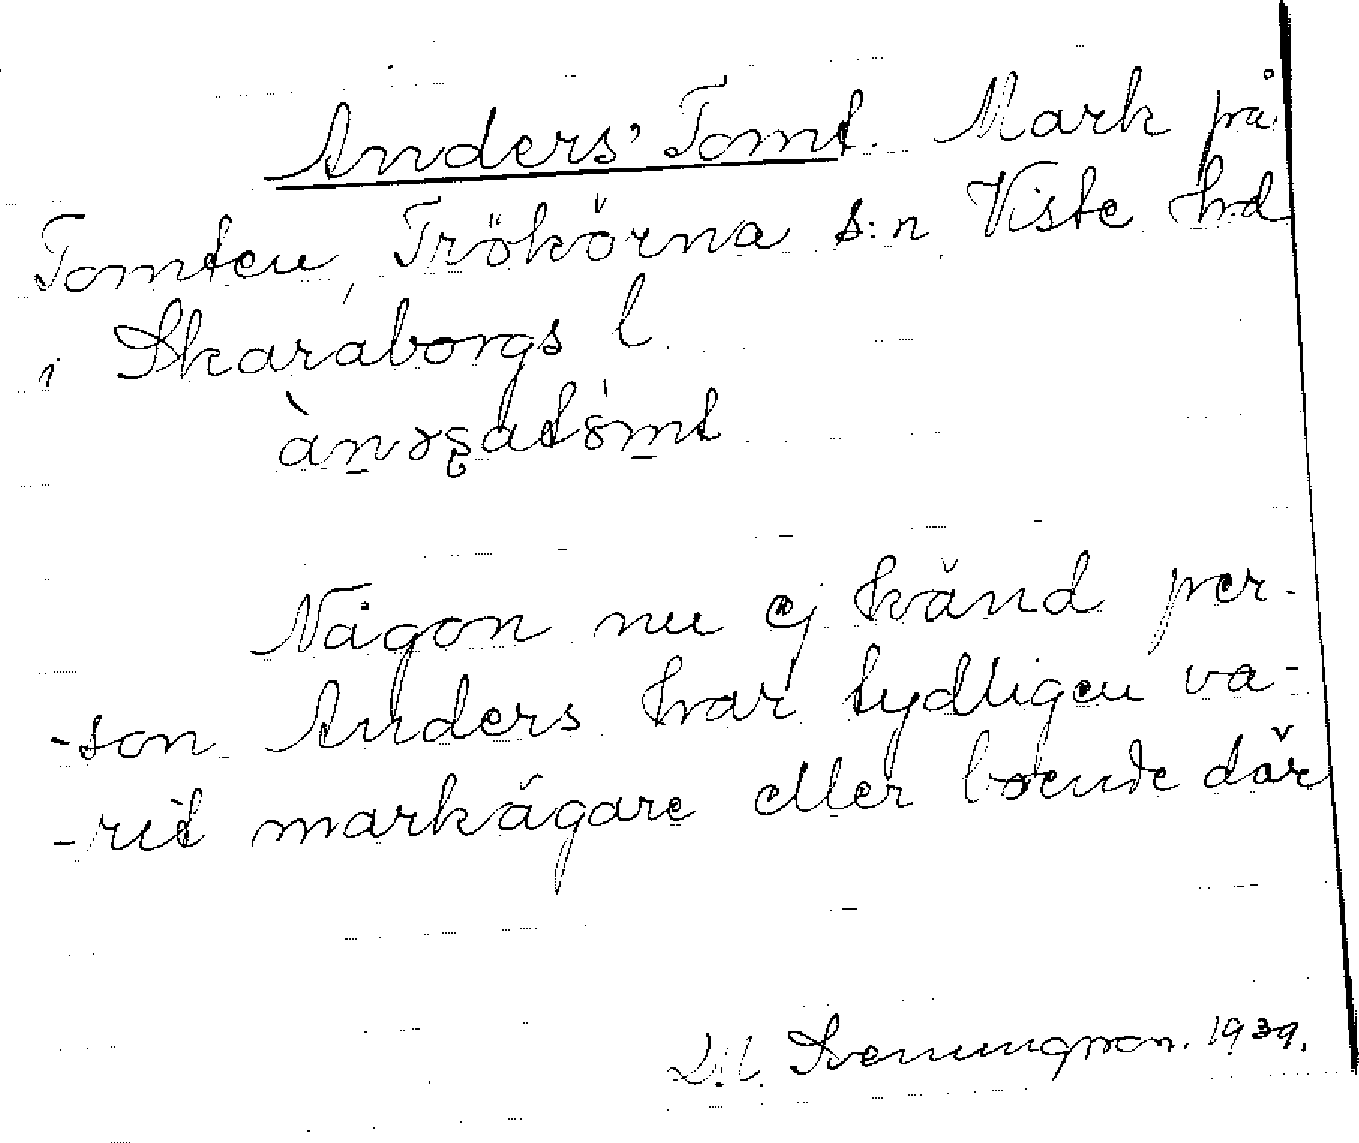 Anders' Tomt. Mark på
Tomten, Trökörna s:n Viste hd
i Skaraborgs l
Någon nu ej känd per-
-son Anders har tydligen va-
-rit markägare eller boende där
1939.